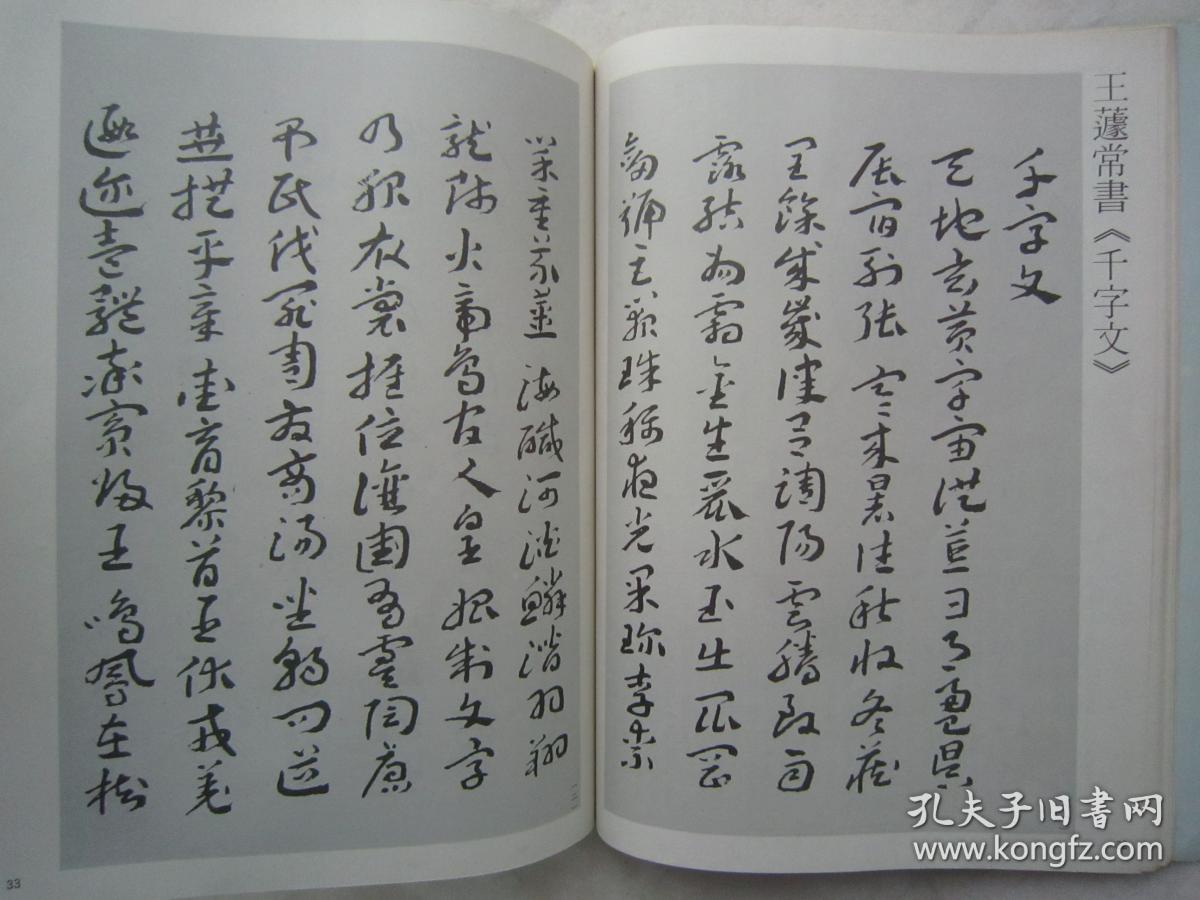 王蘧常書《千字文》
千字文
天地玄黄宇宙洪荒日月盈昃
辰宿列張寒來暑往秋收冬藏
閏餘成歲律吕調陽雲騰致雨
露結為霜金生麗水玉出崑岡
劍號巨闕珠稱夜光果珍李柰
菜重芥薑海醎河淡鱗潛羽翔
龍師火帝鳥官人皇始制文字
乃服衣裳推位讓國有虞陶唐
弔民伐罪周發商湯坐朝問道
垂拱平章愛育黎首臣伏戎羌
遐迩壹體率賓歸王鳴鳳在樹
33
孔夫子旧书网
www.kongfz.com